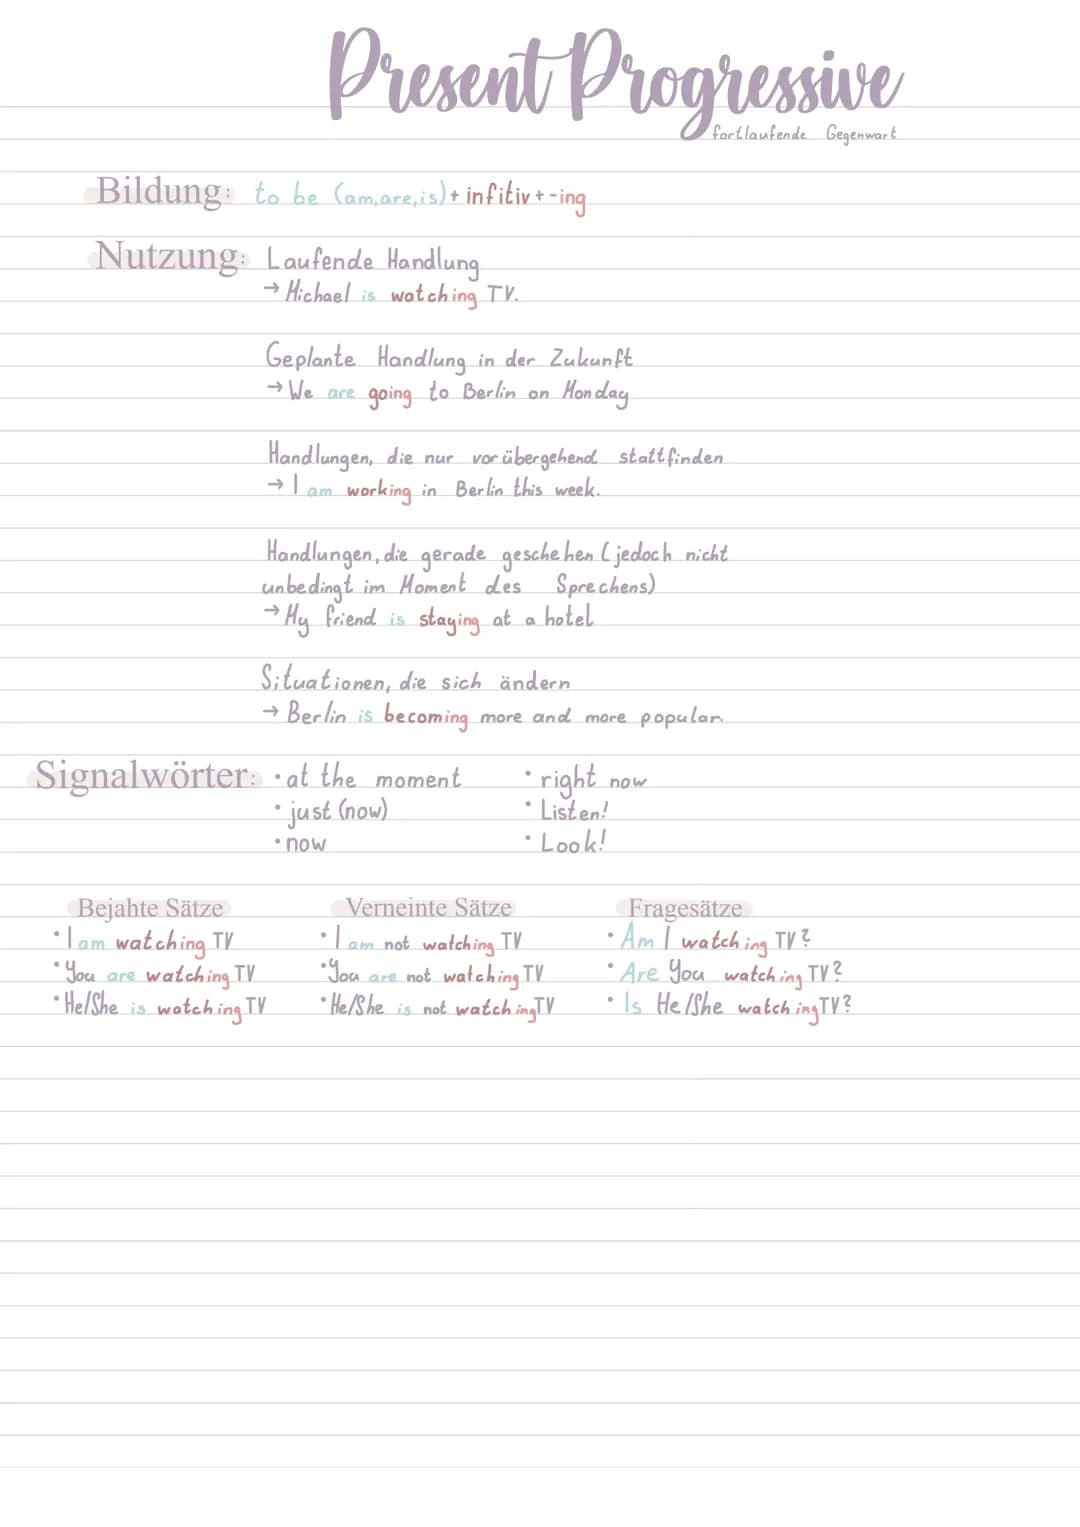 Present Progressive
fortlaufende Gegenwart
Bildung: to be (am,are,is)+infitiv+-ing
Nutzung: Laufende Handlung
→ Michael is watching TV.
Geplante Handlung in der Zukunft
→ We are going to Berlin on Monday
Handlungen, die nur vorübergehend stattfinden
→ I am working in Berlin this week.
Handlungen, die gerade geschehen (jedoch nicht
unbedingt im Moment des Sprechens)
→ My friend is staying at a hotel
Situationen, die sich ändern
→ Berlin is becoming more and more popular.
Signalwörter: • at the moment • right now
• just (now) • Listen!
• now • Look!
Bejahte Sätze Verneinte Sätze Fragesätze
• I am watching TV • I am not watching TV • Am I watching TV?
• You are watching TV • You are not watching TV • Are You watching TV?
• He/She is watching TV • He/She is not watching TV • Is He/She watching TV?